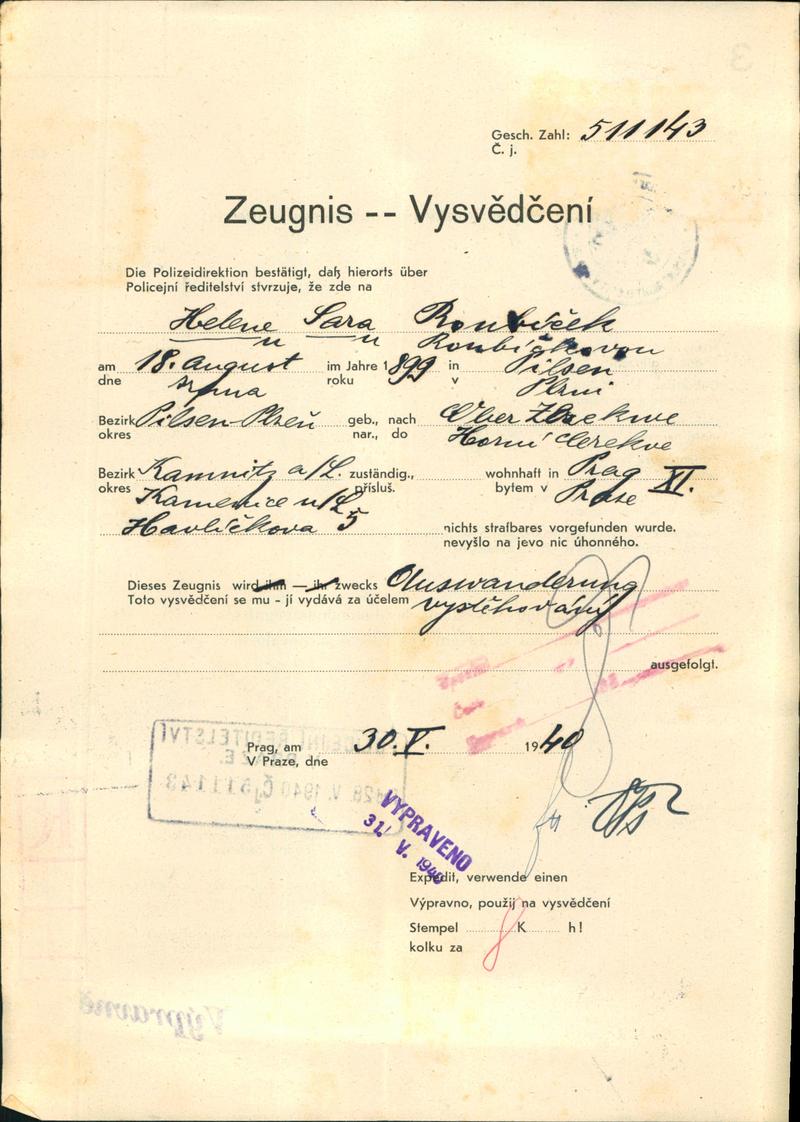 Gesch. Zahl: 511143
Č. j.
Zeugnis -- Vysvědčení
Die Polizeidirektion bestätigt, daß hierorts über
Policejní ředitelství stvrzuje, že zde na
Helene Sara Roubíček
Roubíčkovou
am 18. August im Jahre 1899 in Pilsen
dne srpna roku v Plzni
Bezirk Pilsen-Plzeň geb., nach Ober
okres nar., do Horní Cerekve
Bezirk Kamnitz a/L. zuständig., wohnhaft in Prag XI.
okres Kamenice n/L přísluš. bytem v Praze
Havlíčkova 5 nichts strafbares vorgefunden wurde.
nevyšlo na jevo nic úhonného.
Dieses Zeugnis wird ihm — ihr zwecks Auswanderung
Toto vysvědčení se mu - jí vydává za účelem vystěhování
ausgefolgt.
POLICEJNÍ ŘEDITELSTVÍ
28. V. 1940 Čj 511143
Prag, am 30. V. 1940
V Praze, dne
VYPRAVENO
31. V. 1940
Expedit, verwende einen
Výpravno, použij na vysvědčení
Stempel 8 K h!
kolku za
Výpravně